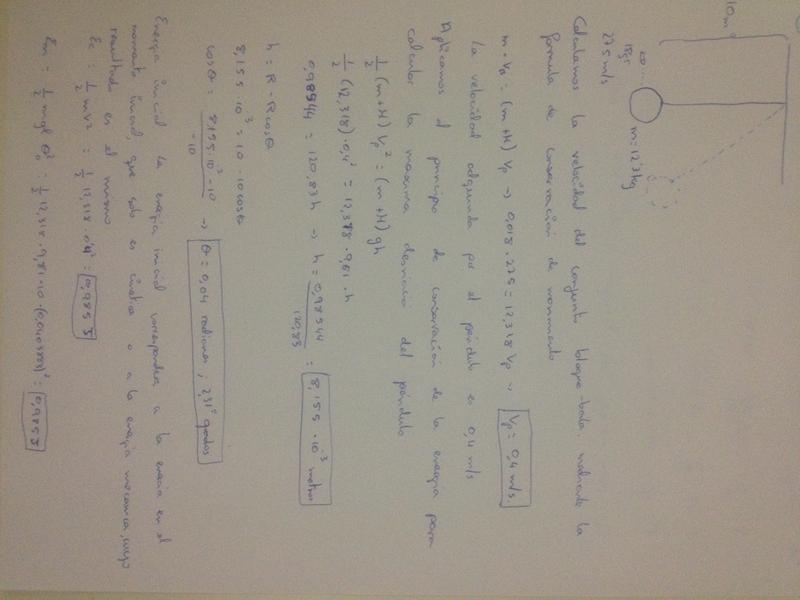 10m
275 m/s
18gr
m=12'3 kg
Calculamos la velocidad del conjunto bloque-bala mediante la
formula de conservación de movimiento
m · Va = (m+M) Vp → 0,018 · 275 = 12,318 Vp → Vp = 0,4 m/s
La velocidad adquirida por el péndulo es 0,4 m/s
Aplicamos el principio de conservación de la energía para
calcular la maxima desviacio del péndulo
1/2 (m+M) Vp² = (m+M) gh
1/2 (12,318) · 0,4² = 12,318 · 9,81 · h
0,98544 = 120,83 h → h = 0,98544 / 120,83 = 8,155 · 10⁻³ metros
h = R - R cosθ
8,155 · 10⁻³ = 10 - 10 cosθ
cosθ = 8,155·10⁻³ - 10 / -10 → θ = 0,04 radianes ; 2,31° grados
Energía inicial la energia inicial corresponde a la energia en el
momento inicial, que solo es cinética o a la energia mecanica, cuyo
resultado es el mismo
Ec = 1/2 mv² = 1/2 12,318 · 0,4² = 0,985 J
Em = 1/2 m g l θo² = 1/2 12,318 · 9,81 · 10 · = 0,985 J